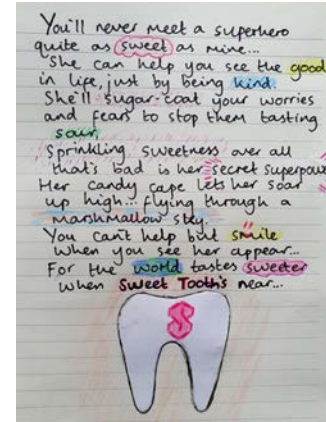 You'll never meet a superhero
quite as sweet as mine...
She can help you see the good
in life, just by being kind.
She'll sugar-coat your worries
and fears to stop them tasting
sour.
Sprinkling sweetness over all
that's bad is her secret superpower
Her candy cape lets her soar
up high... flying through a
marshmallow sky.
You can't help but smile
when you see her appear...
For the world tastes sweeter
when Sweet Tooth's near...
S